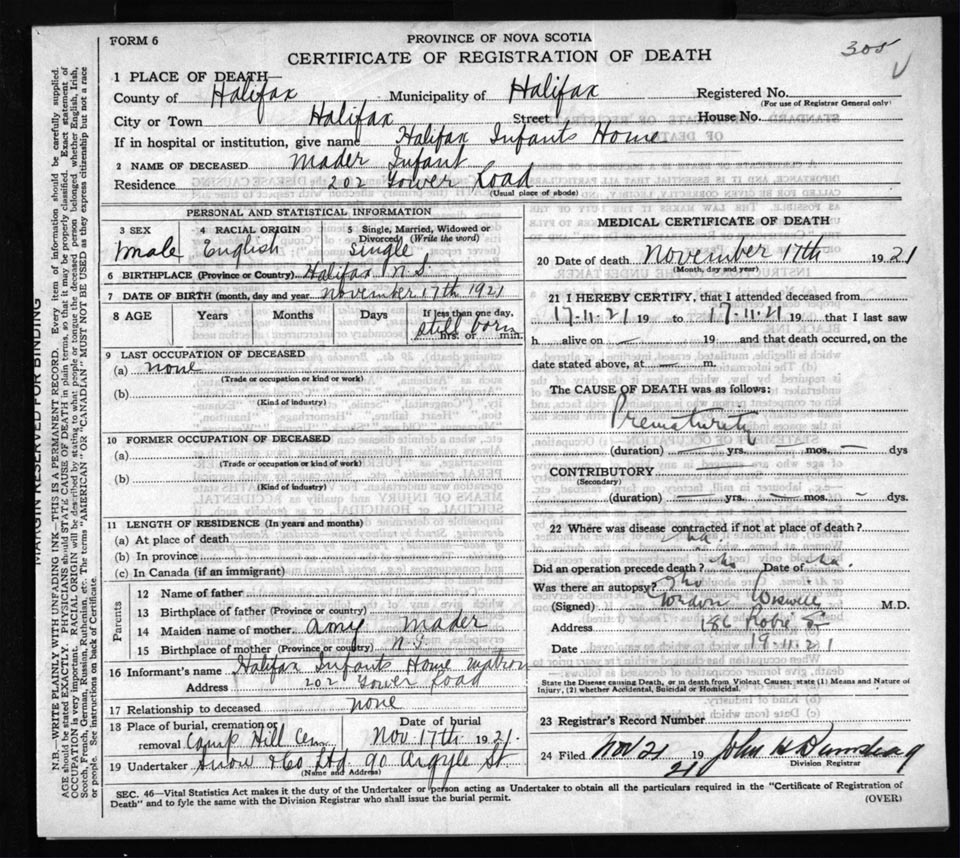 FORM 6
PROVINCE OF NOVA SCOTIA
CERTIFICATE OF REGISTRATION OF DEATH
305
1 PLACE OF DEATH—
County of Halifax Municipality of Halifax Registered No.
(For use of Registrar General only)
City or Town Halifax Street House No.
If in hospital or institution, give name Halifax Infants Home
2 NAME OF DECEASED Mader Infant
Residence 202 Tower Road
(Usual place of abode)
PERSONAL AND STATISTICAL INFORMATION
3 SEX 4 RACIAL ORIGIN 5 Single, Married, Widowed or Divorced (Write the word)
male English single
6 BIRTHPLACE (Province or Country) Halifax N.S.
7 DATE OF BIRTH (month, day and year November 17th 1921
8 AGE Years Months Days If less than one day,
still born
hrs. or min.
9 LAST OCCUPATION OF DECEASED
(a) none
(Trade or occupation or kind or work)
(b)
(Kind of industry)
10 FORMER OCCUPATION OF DECEASED
(a)
(Trade or occupation or kind or work)
(b)
(Kind of industry)
11 LENGTH OF RESIDENCE (In years and months)
(a) At place of death
(b) In province
(c) In Canada (if an immigrant)
Parents
12 Name of father
13 Birthplace of father (Province or country)
14 Maiden name of mother Amy Mader
15 Birthplace of mother (Province or country) N.S.
16 Informant's name Halifax Infants Home matron
Address 202 Tower Road
17 Relationship to deceased none
18 Place of burial, cremation or removal Camp Hill Cem Date of burial Nov 17th 1921.
19 Undertaker Snow & Co Ltd 90 Argyle St
(Name and Address)
MEDICAL CERTIFICATE OF DEATH
20 Date of death November 17th 1921
(Month, day and year)
21 I HEREBY CERTIFY, that I attended deceased from
17-11-21 19 to 17-11-21 19 that I last saw
h alive on — 19 and that death occurred, on the
date stated above, at — m.
The CAUSE OF DEATH was as follows:
Prematurity
(duration) — yrs. — mos. — dys
CONTRIBUTORY
(Secondary)
(duration) — yrs. — mos. — dys.
22 Where was disease contracted if not at place of death?
Did an operation precede death? no Date of
Was there an autopsy? no
(Signed) Gordon Wiswell M.D.
Address 186 Robie St
Date 19.11.21
State the Disease causing Death, or in death from Violent Causes state (1) Means and Nature of
Injury, (2) whether Accidental, Suicidal or Homicidal.
23 Registrar's Record Number
24 Filed Nov 21 19 21 John H
Division Registrar
SEC. 46—Vital Statistics Act makes it the duty of the Undertaker or person acting as Undertaker to obtain all the particulars required in the "Certificate of Registration of
Death" and to fyle the same with the Division Registrar who shall issue the burial permit.
(OVER)
MARGIN RESERVED FOR BINDING
N.B.—WRITE PLAINLY WITH UNFADING INK—THIS IS A PERMANENT RECORD. Every item of information should be carefully supplied.
AGE should be stated EXACTLY. PHYSICIANS should STATE CAUSE OF DEATH in plain terms, so that it may be properly classified. Exact statement of
OCCUPATION is very important. RACIAL ORIGIN will be described by stating to what people or tongue the deceased person belonged whether English, Irish,
Scotch, French, German, Russian, Ruthenian, etc. The terms "AMERICAN" OR "CANADIAN" MUST NOT BE USED as they express citizenship but not a race
or people. See instructions on back of Certificate.